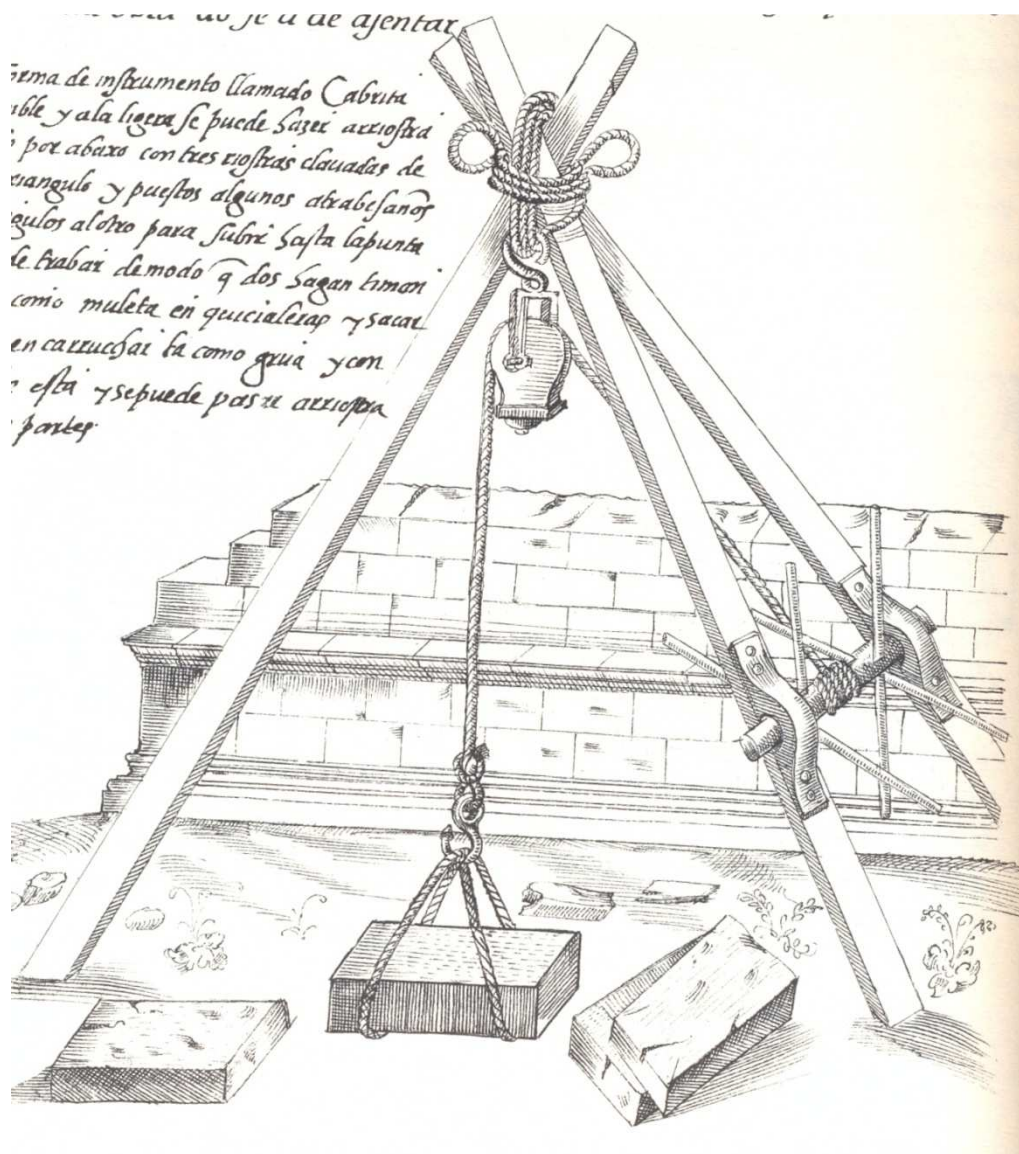 do se a de asentar
forma de instrumento llamado Cabrita
able y a la ligera se puede hazer arriostra
por abaxo con tres riostras clauadas de
triangulo y puestos algunos atrabesaños
gulos al otro para subir hasta la punta
de trabar de modo q̃ dos hagan timon
como muleta en quicialeras y sacar
en carruchar ba como grua y con
esta y se puede pasar arriostra
partes